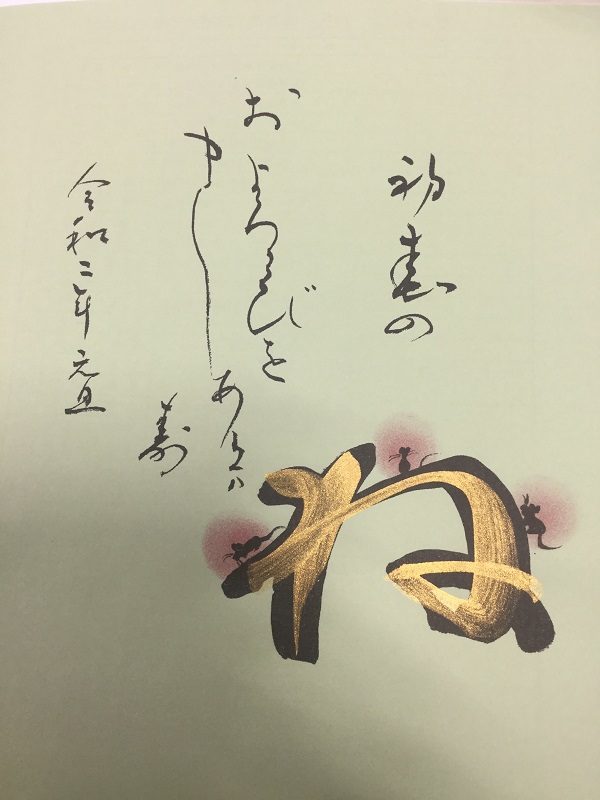 初春の
およろこびを
申しあげ
寿
令和二年 元旦
ね